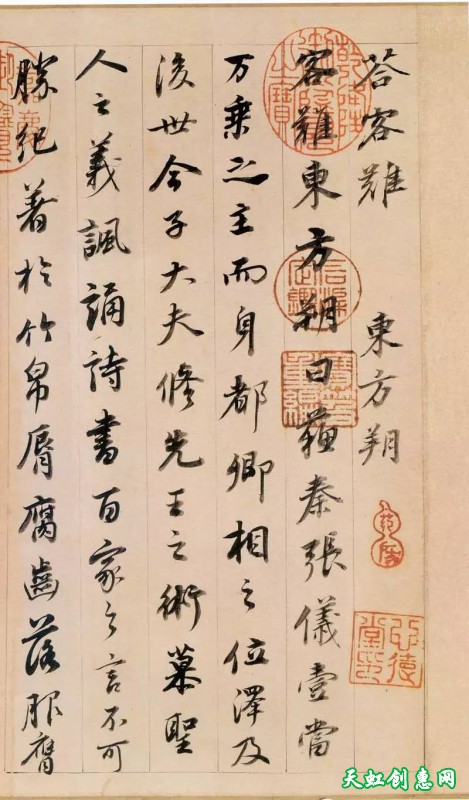 答客難 東方朔
客難東方朔曰蘇秦張儀壹當
万乘之主而身都卿相之位澤及
後世今子大夫修先王之術慕聖
人之義諷誦詩書百家之言不可
勝紀著於竹帛脣腐齒落服膺
天虹创惠网